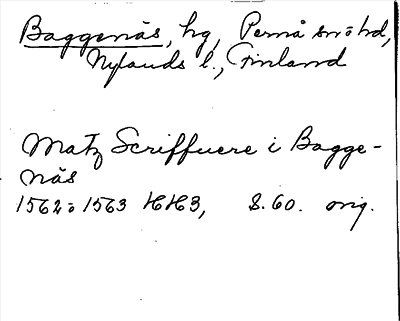 Baggenäs, hg, Pernå snöhd,
Nylands l., Finland
Matz Scriffuere i Bagge-
näs
1562: 1563 HH3, S. 60. orig.